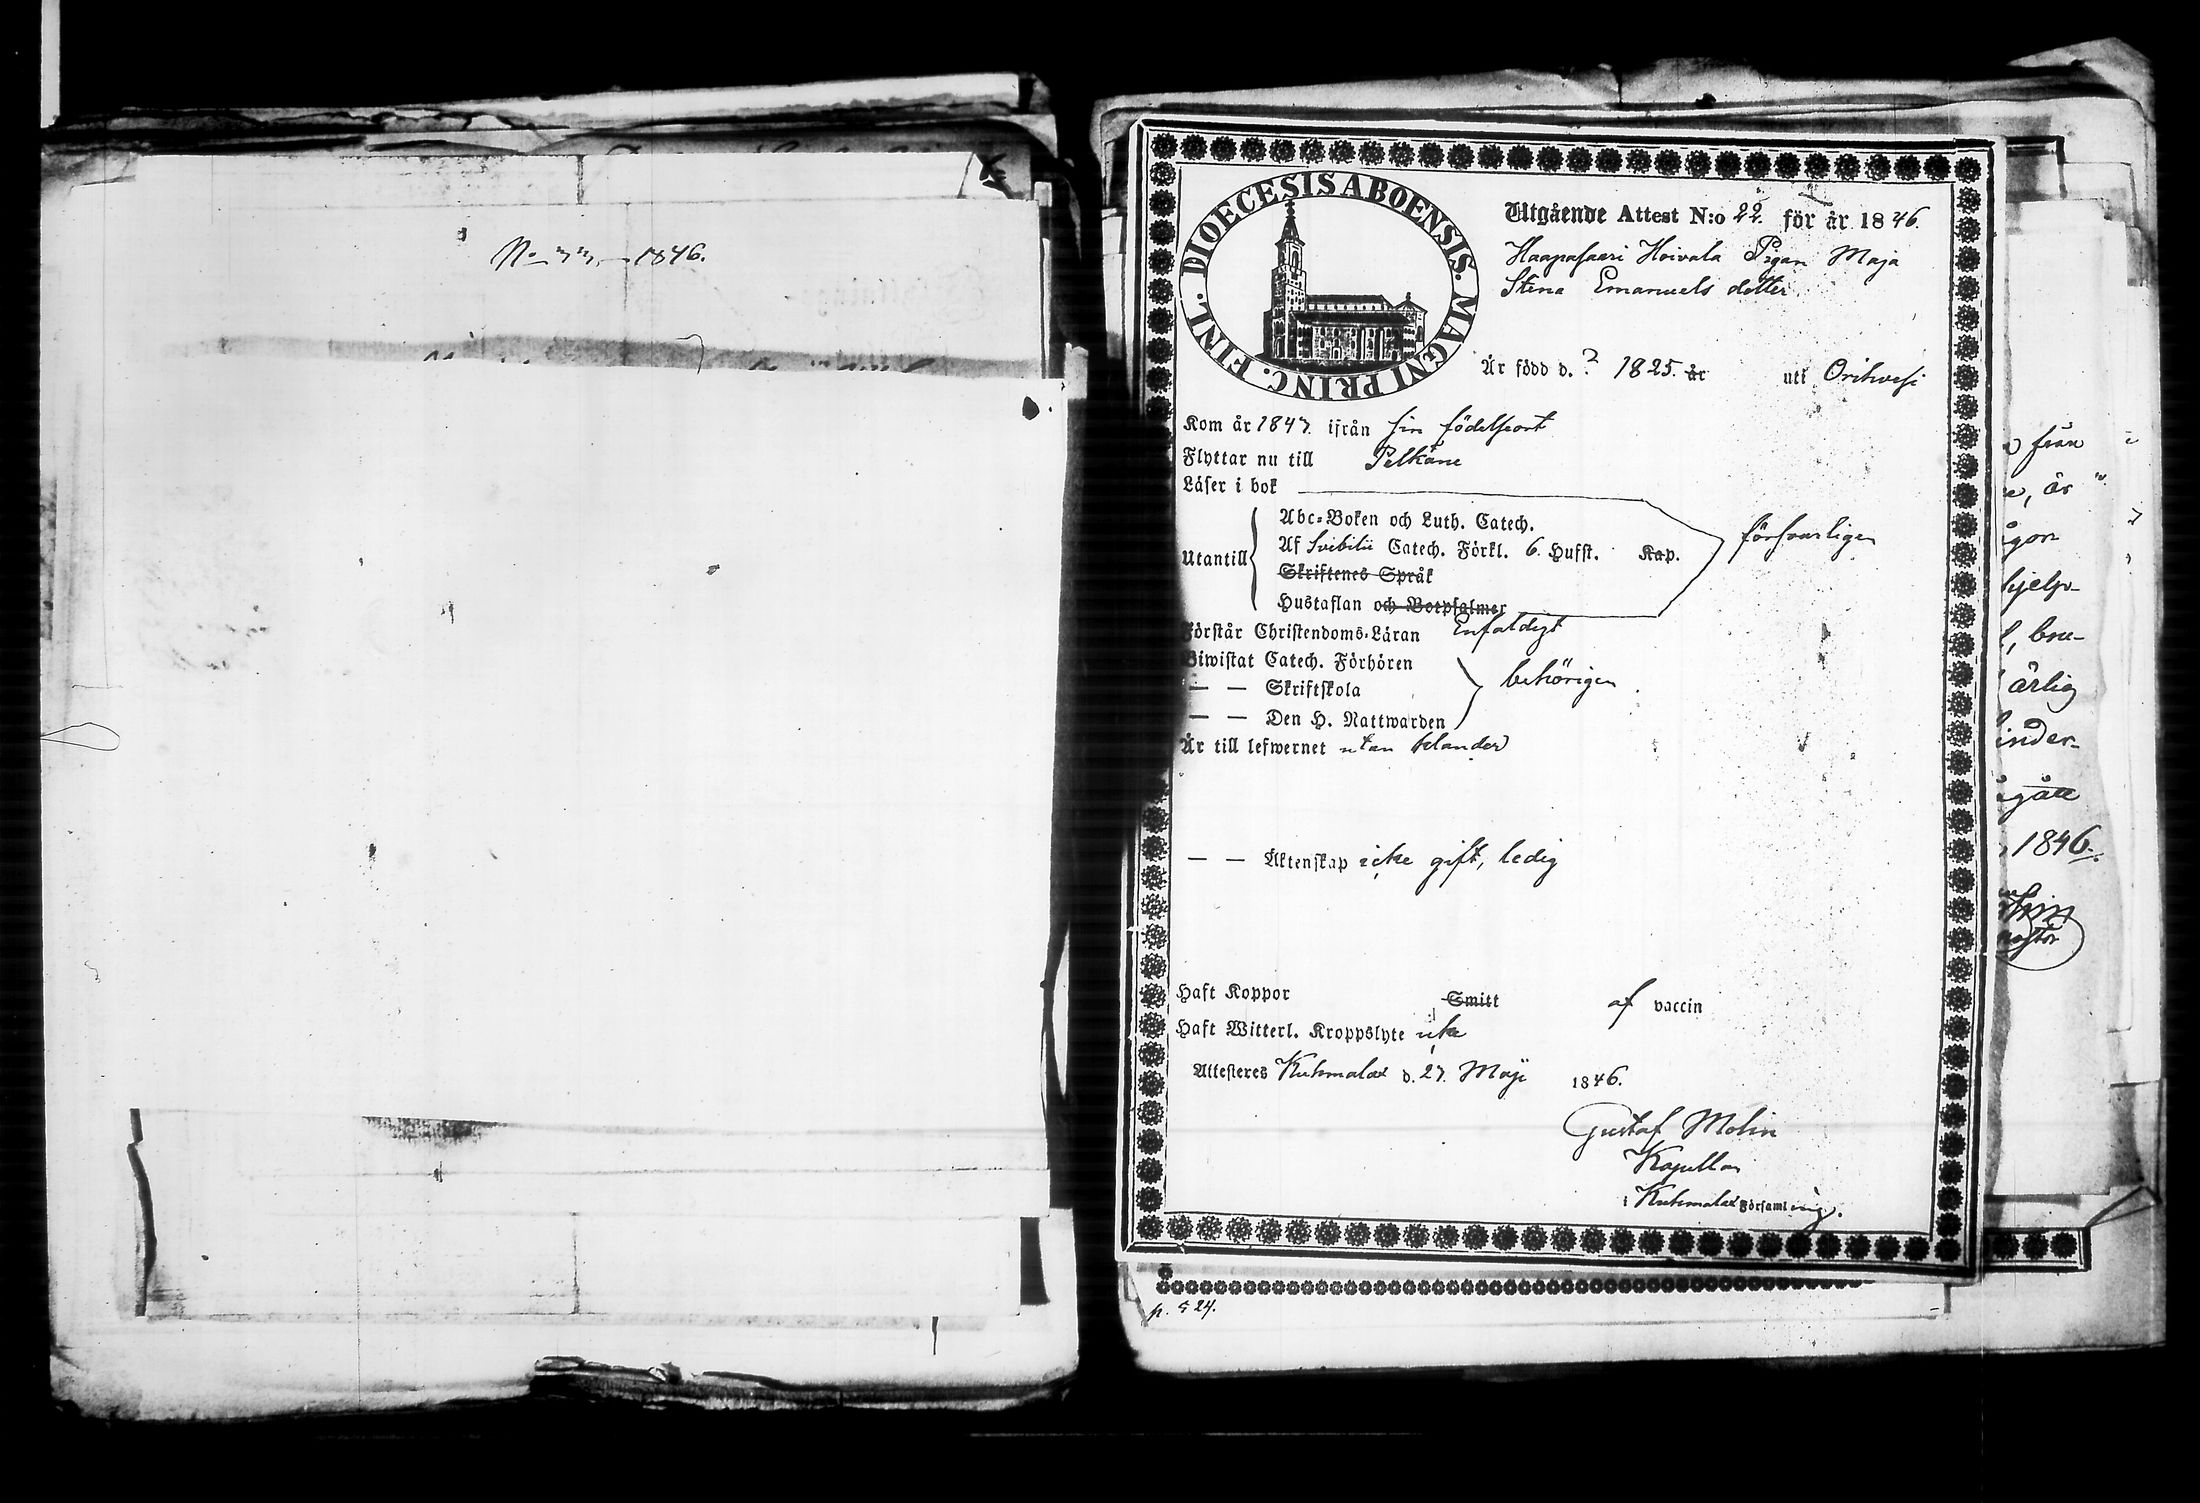 No 33. – 1846.
DIOECESIS ABOENSIS. MAGNI PRINC. FINL.
Utgående Attest N:o 22. för år 1846.
Haapasaari Hoivala Pigan Maja
Stina Emanuels dotter.
Är född d. ? 1825. år utj Orihvesi
Kom år 1843. ifrån sin födelseort
Flyttar nu till Pelkäne
Läser i bok
Utantill
Abc-Boken och Luth. Catech.
Af Svebilii Catech. Förkl. 6. Hufst. Kap.
försvarligen
Skriftenes Språk
Hustaflan och Botpsalmer
Förstår Christendoms-Läran Enfaldigt
Biwistat Catech. Förhören
— — Skriftskola
behörigen
— — Den H. Nattwarden
Är till lefwernet utan klander
— — Äktenskap icke gift, ledig
Haft Koppor Smitt af vaccin
Haft Witterl. Kroppslyte icke
Attesteres Kuhmalax d. 27. Maji 1846.
Gustaf Molin
Kapellan
i Kuhmalax Församling.
p. 524.
från
är
hjelp-
bru-
ärlig
1846.